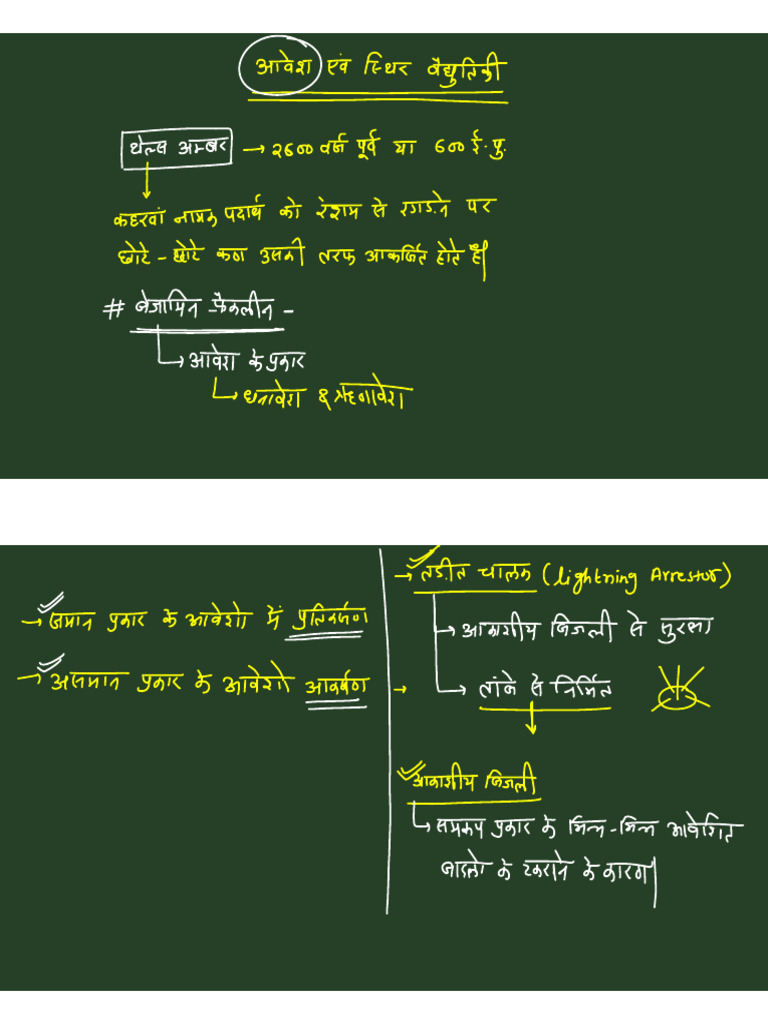 आवेश एवं स्थिर वैद्युतिकी
थेल्स अम्बर → 2600 वर्ष पूर्व या 600 ई.पु.
कहरवां नामक पदार्थ को रेशम से रगड़ने पर
छोटे - छोटे कण उसकी तरफ आकर्षित होते हैं|
# बेंजामिन फ्रैंकलीन -
आवेश के प्रकार
धनावेश & ऋणावेश
→ समान प्रकार के आवेशो में प्रतिकर्षण
→ असमान प्रकार के आवेशो आकर्षण →
→ तड़ीत चालक (lightning Arrestor)
→ आकाशीय बिजली से सुरक्षा
→ तांबे से निर्मित
आकाशीय बिजली
समरूप प्रकार के भिन्न-भिन्न आवेशित
बादलो के टकराने के कारण|